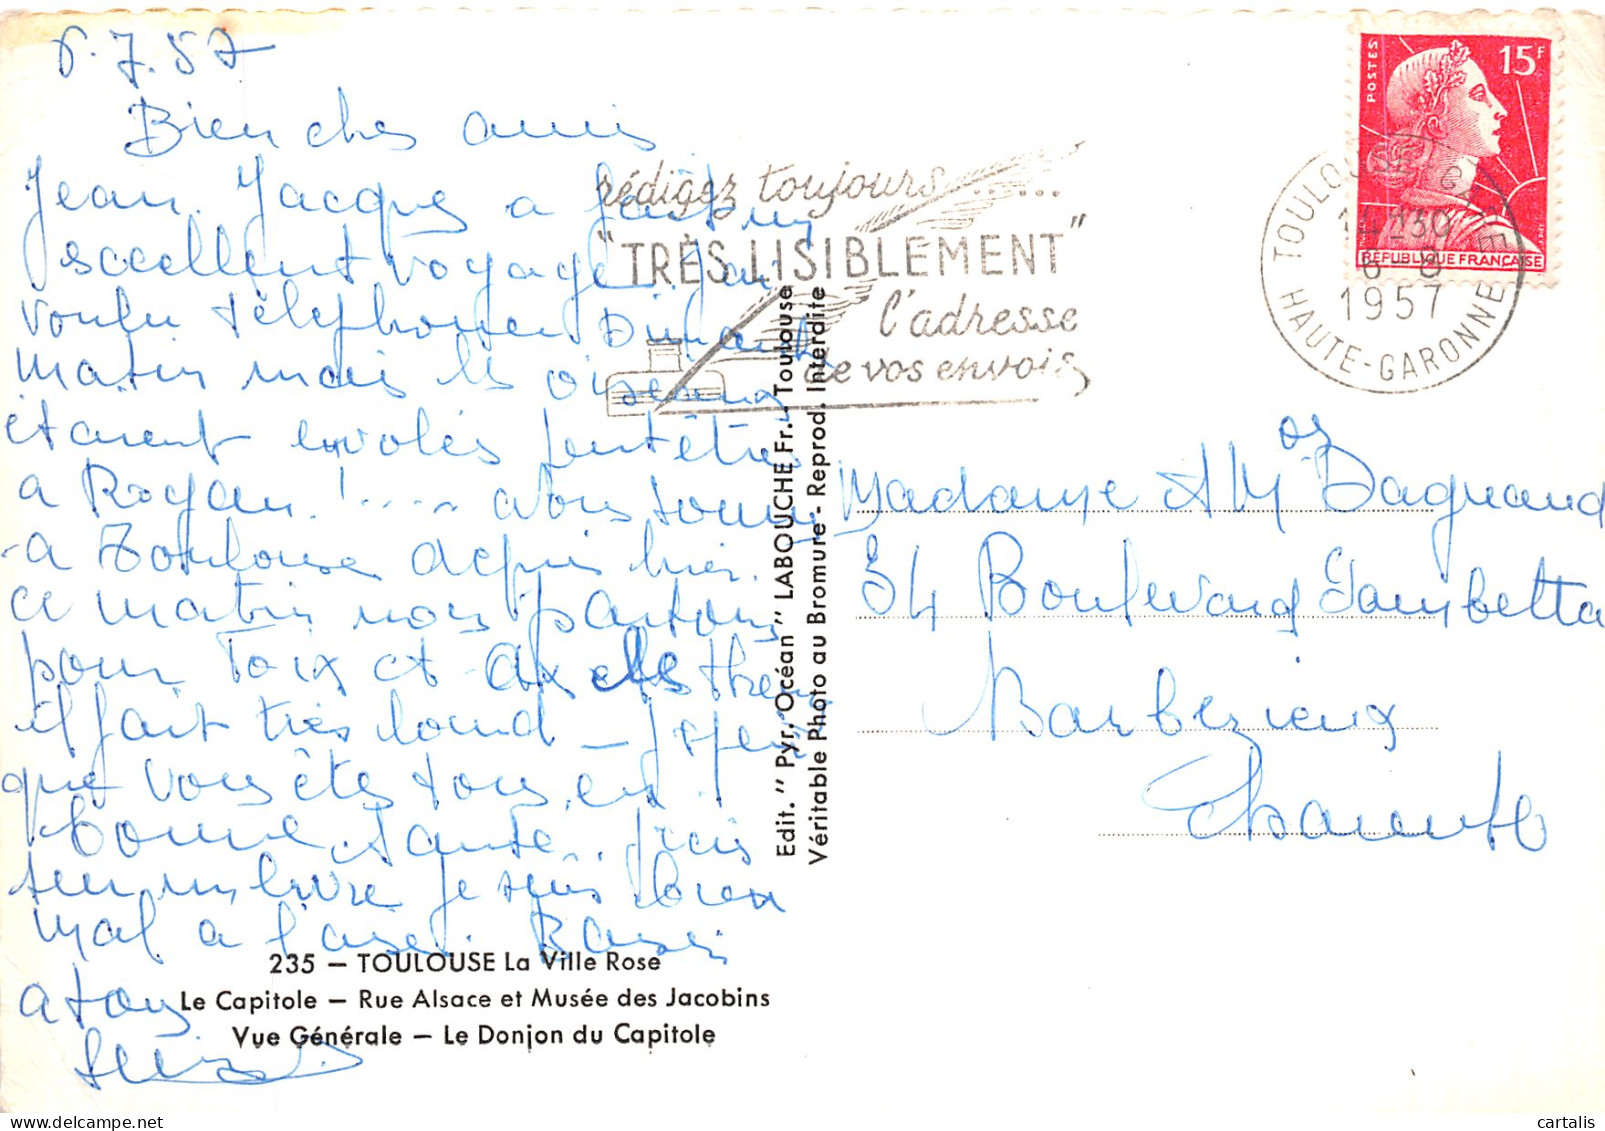 6.7.57
Bien chers amis
Jean Jacques a fait un
excellent voyage. J'ai
voulu téléphoner Dimanche
matin mais les oiseaux
étaient envolés peut êtres
a Royan !.... Nous sommes
a Toulouse depuis hier.
ce matin nous partons
pour Foix et Ax les Thermes
il fait très lourd – J'espère
que vous êtes tous en
bonne santé.
sur un livre je suis bien
mal a l'aise. Baisers
a tous
235 – TOULOUSE La Ville Rose
Le Capitole – Rue Alsace et Musée des Jacobins
Vue Générale – Le Donjon du Capitole
Edit. "Pyr. Océan" LABOUCHE Fr. - Toulouse
Véritable Photo au Bromure - Reprod. Interdite
rédigez toujours......
"TRÈS LISIBLEMENT"
l'adresse
de vos envois
POSTES
15F
REPUBLIQUE FRANÇAISE
TOULOUSE GARE
14 H 30
6 - 8
1957
HAUTE-GARONNE
Madame A M Dagnaud
34 Boulevard Gambetta
Barbezieux
Charente
cartalis